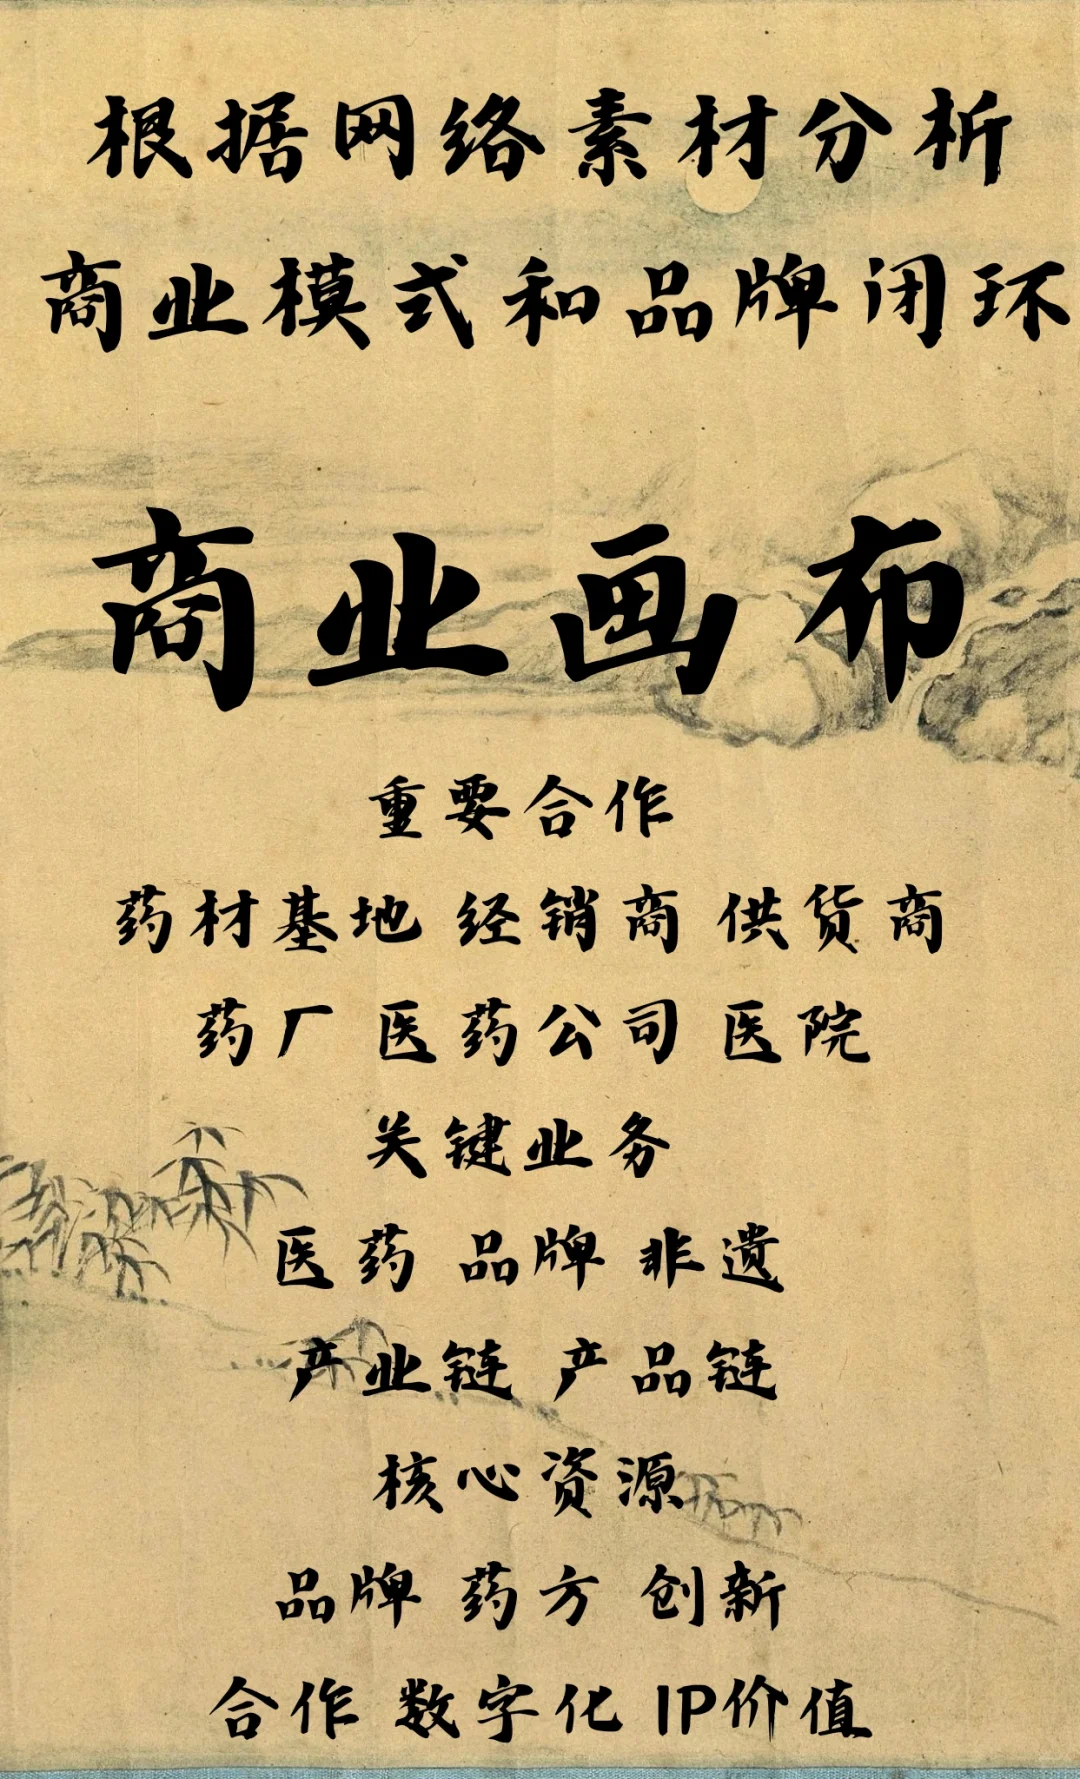 根据网络素材分析
商业模式和品牌闭环
商业画布
重要合作
药材基地 经销商 供货商
药厂 医药公司 医院
关键业务
医药 品牌 非遗
产业链 产品链
核心资源
品牌 药方 创新
合作 数字化 IP价值